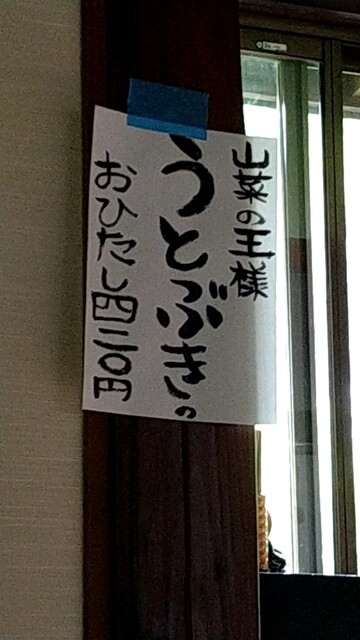 山菜の王様
うとぶきの
おひたし四三〇円